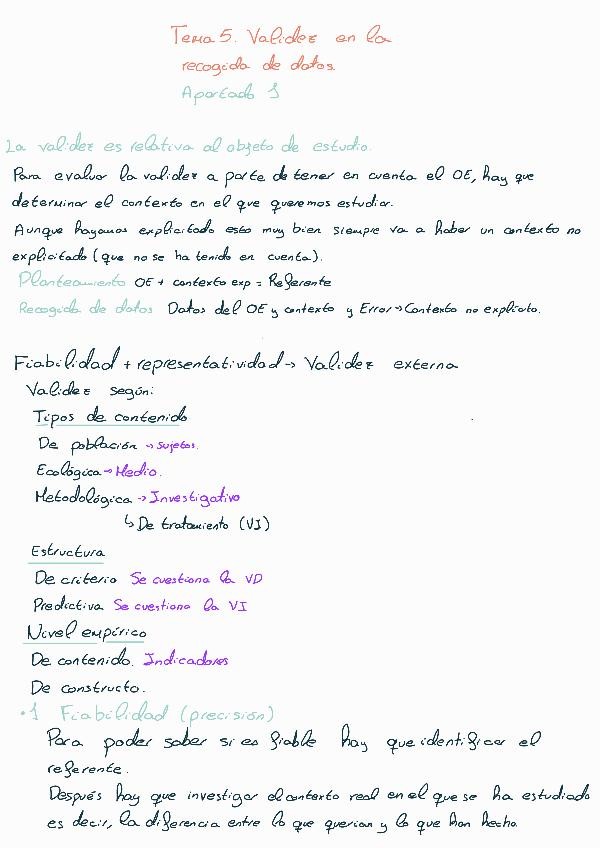 Tema 5. Validez en la
recogida de datos.
Apartado 1
La validez es relativa al objeto de estudio.
Para evaluar la validez a parte de tener en cuenta el OE, hay que
determinar el contexto en el que queremos estudiar.
Aunque hayamos explicitado esto muy bien siempre va a haber un contexto no
explicitado (que no se ha tenido en cuenta).
Planteamiento OE + contexto exp = Referente
Recogida de datos Datos del OE y contexto y Error → Contexto no explícito.
Fiabilidad + representatividad → Validez externa
Validez según:
Tipos de contenido
De población → Sujetos.
Ecológica → Medio.
Metodológica → Investigativo
↳ De tratamiento (VI)
Estructura
De criterio Se cuestiona la VD
Predictiva Se cuestiona la VI
Nivel empírico
De contenido. Indicadores
De constructo.
·1 Fiabilidad (precisión)
Para poder saber si es fiable hay que identificar el
referente.
Después hay que investigar el contexto real en el que se ha estudiado
es decir, la diferencia entre lo que querían y lo que han hecho.